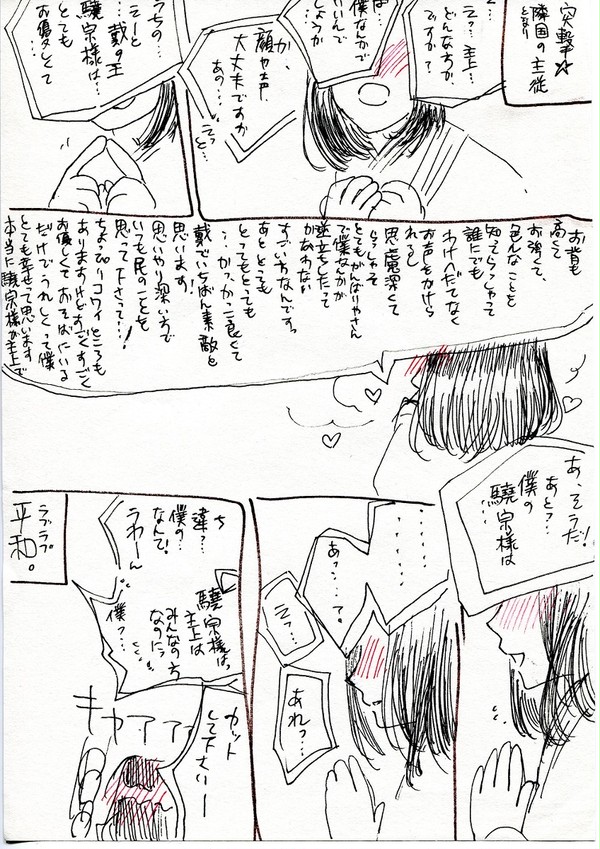 突撃☆
隣国の主従
となり
えっ?主上…
どんな方か、
ですか?
僕なんかで
いいんで
しょうか
か、
顔や声、
大丈夫ですか
あの…
えっと…
うちの…
えーと
…戴の王
驍宗様は…
とても
お優しくて
お背も
高くて
お強くて、
色んなことを
知ってらっしゃって
誰にでも
わけへだてなく
お声をかけら
れるし
思慮深くて
らっしゃるし
とてもがんばりやさん
で僕なんかが
逆立ちしたって
かなわない
すごい方なんですっ
あととっても
とってもとっても
…かっかっこ良くて
戴でいちばん素敵だと
思います!
思いやり深い方で
いつも民のことを
思って下さって…!
ちょっぴりコワイところも
ありますけどすごくすごく
お優しくておそばにいる
だけでうれしくって僕
とても幸せって思います
本当に驍宗様が主上で
あ、そうだ!
あと…
僕の
驍宗様は
あっ…て。
えっ…
あれっ…
ち
違…
僕の
なんて
うわーん
驍宗様は、
主上は
みんなの方
なのにっ
僕っ…
カット
して下さいー
キャアアア
ラブラブ
平和。